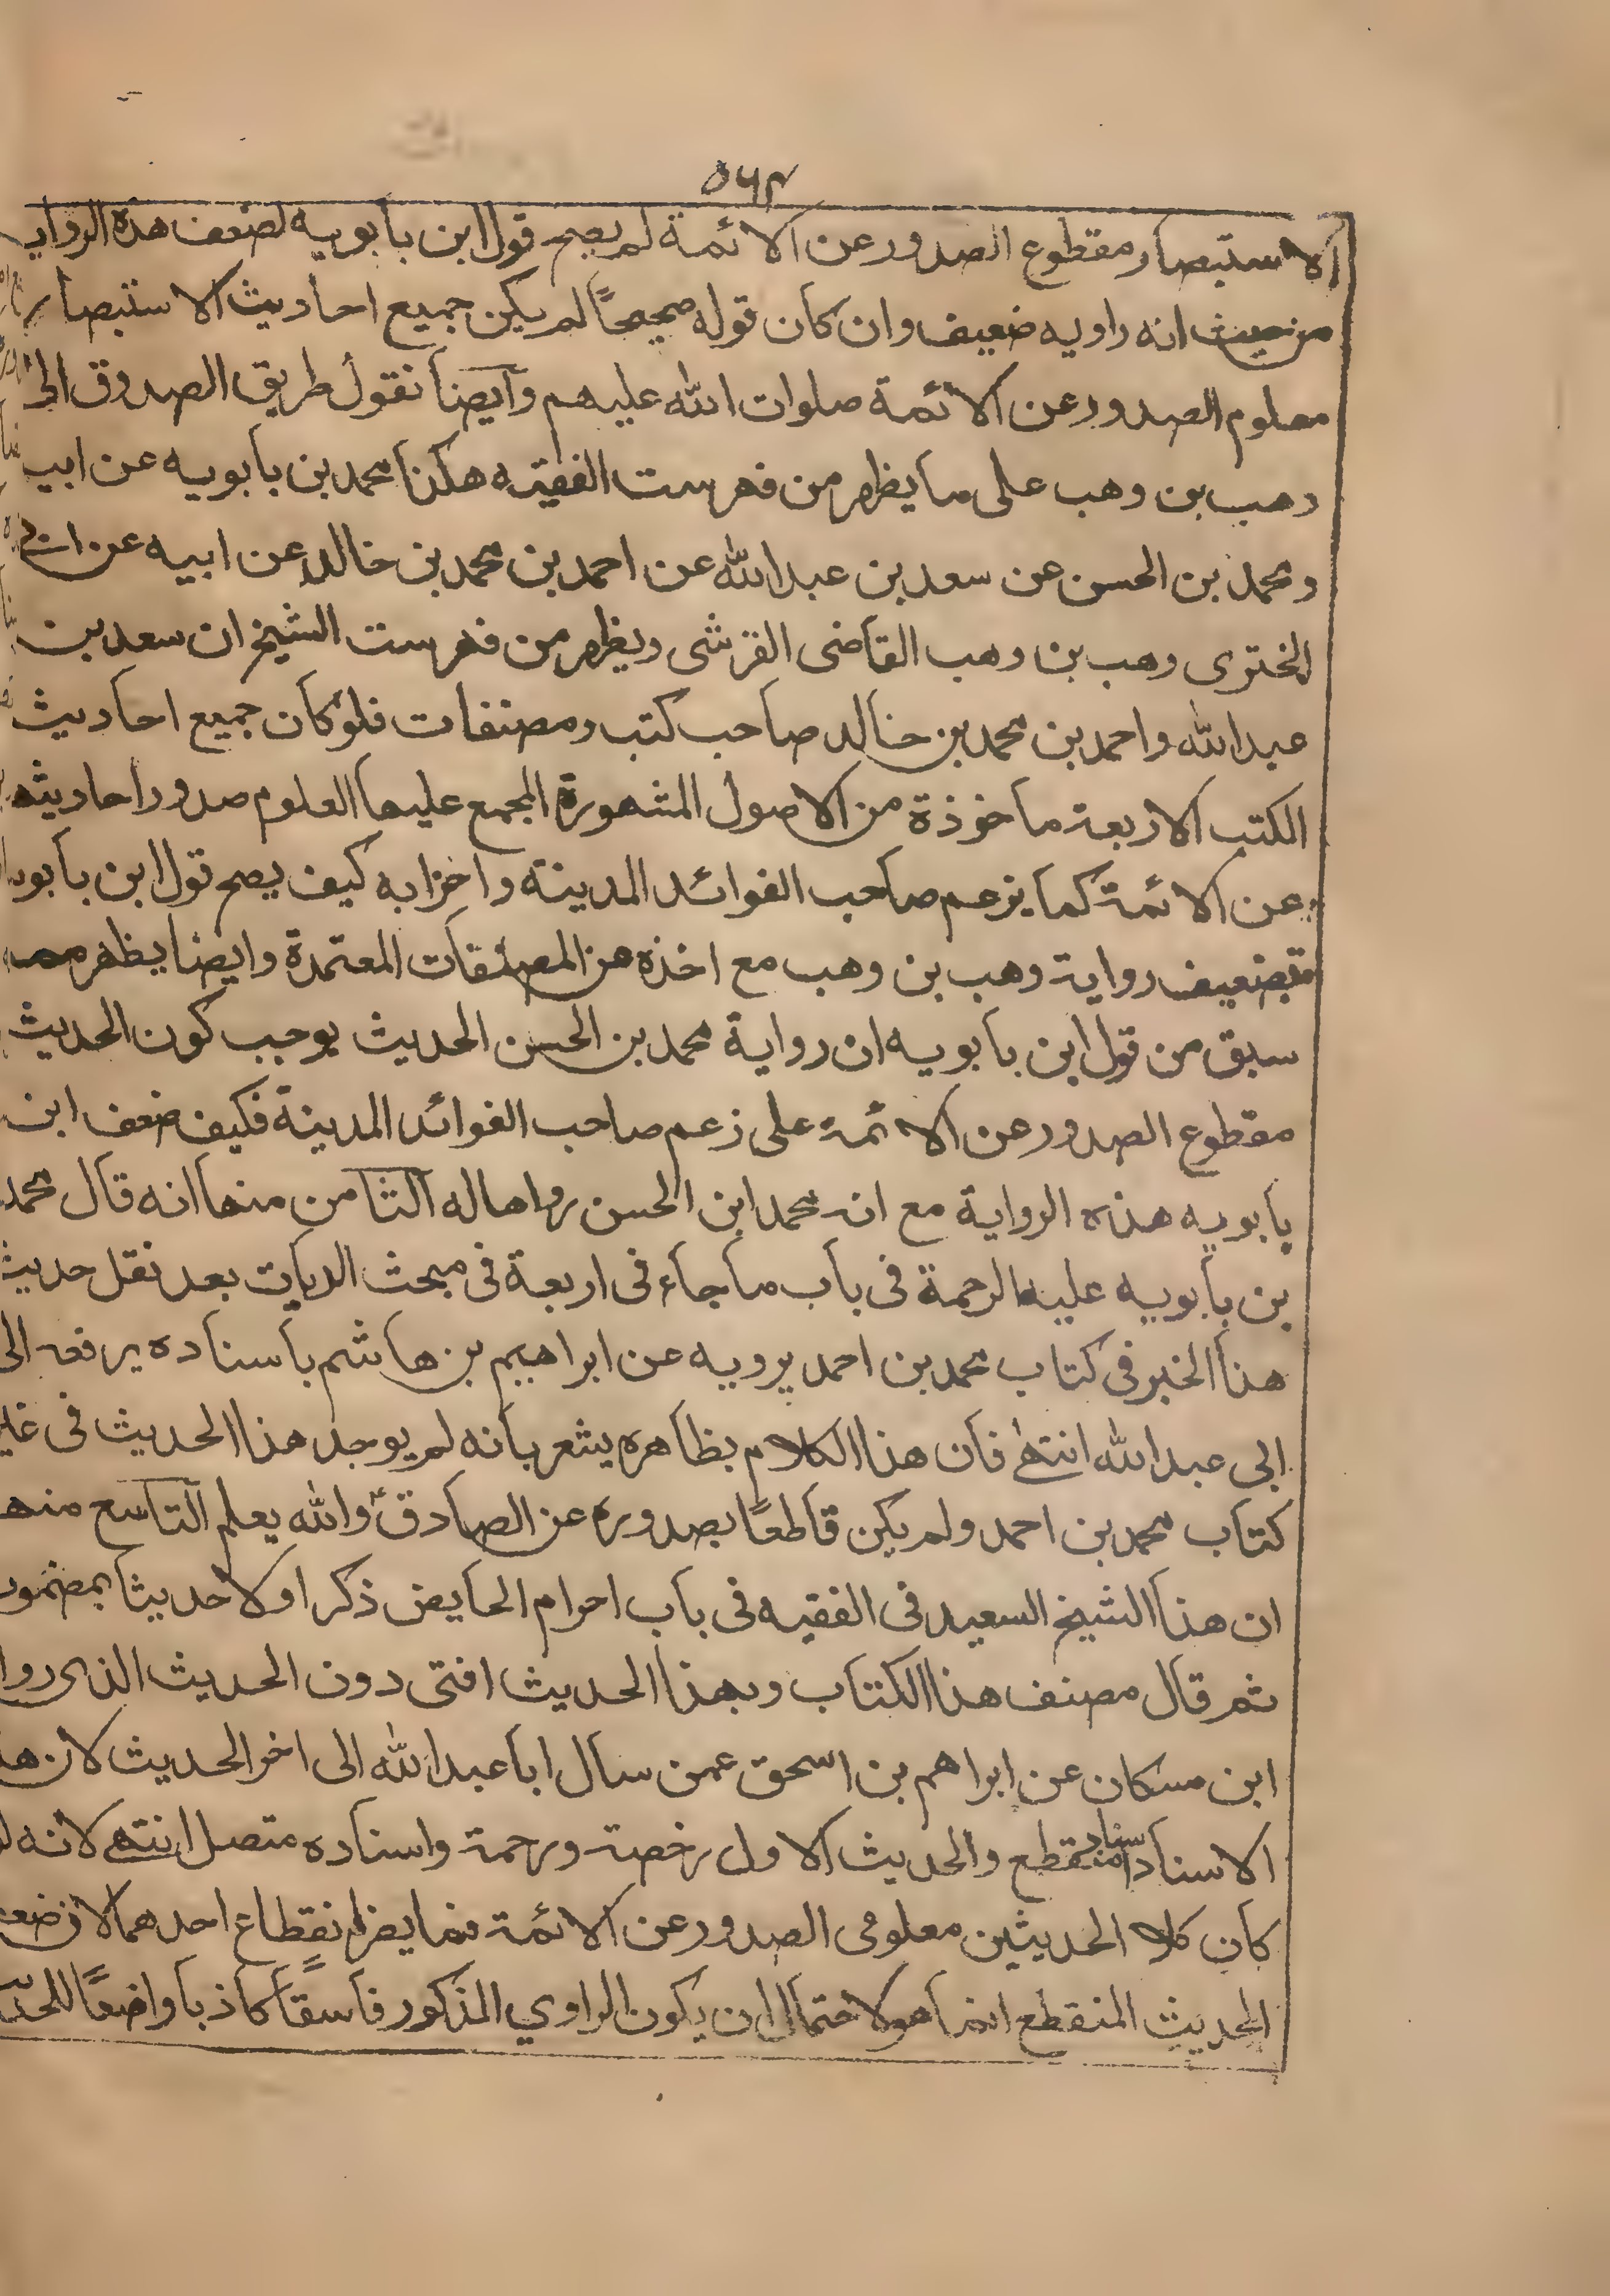 ۵۶۴
الاستبصار مقطوع الصدور عن الائمة لم يصح قول ابن بابويه لضعف هذه الرواي
من حيث انه راويه ضعيف وان كان قوله صحيحًا لم يكن جميع احاديث الاستبصار
معلوم الصدور عن الائمة صلوات الله عليهم وايضا نقول طريق الصدوق الى
وهب بن وهب على ما يظهر من فهرست الفقيه هكذا محمد بن بابويه عن ابيه
ومحمد بن الحسن عن سعد بن عبدالله عن احمد بن محمد بن خالد عن ابيه عن ابي
البختري وهب بن وهب القاضى القرشى ويظهر من فهرست الشيخ ان سعد بن
عبدالله واحمد بن محمد بن خالد صاحب كتب ومصنفات فلو كان جميع احاديث
الكتب الاربعة ماخوذة من الاصول المشهورة المجمع عليها العلوم صدور احاديثها
عن الائمة كما يزعم صاحب الفوائد المدينة واحزابه كيف يصح قول ابن بابويه
بتضعيف رواية وهب بن وهب مع اخذه من المصنفات المعتمدة وايضا يظهر مما
سبق من قول ابن بابويه ان رواية محمد بن الحسن الحديث يوجب كون الحديث
مقطوع الصدور عن الائمة على زعم صاحب الفوائد المدينة فكيف ضعف ابن
بابويه هذه الرواية مع انه محمد ابن الحسن رواها له الثامن منها انه قال محمد
بن بابويه عليه الرحمة فى باب ما جاء فى اربعة فى مبحث الديات بعد نقل حديث
هذا الخبر فى كتاب محمد بن احمد يرويه عن ابراهيم بن هاشم باسناده يرفعه الى
ابى عبدالله انتهى فان هذا الكلام بظاهره يشعر بانه لم يوجد هذا الحديث فى غير
كتاب محمد بن احمد ولم يكن قاطعًا بصدوره عن الصادق والله يعلم التاسع منها
ان هذا الشيخ السعيد فى الفقيه فى باب احرام الحايض ذكر اولا حديثا بمضمون
ثم قال مصنف هذا الكتاب وبهذا الحديث افتى دون الحديث الذى روا
ابن مسكان عن ابراهم بن اسحق عمن سال ابا عبدالله الى اخر الحديث لان هذا
الاسناد اسناد منقطع والحديث الاول رخصة ورحمة واسناده متصل انتهى لانه لو
كان كلا الحديثين معلومى الصدور عن الائمة فما يضر انقطاع احدهما لان ضعف
الحديث المنقطع انما هو لاحتمال ان يكون الراوي المذكور فاسقًا كاذبا واضعًا للحديث